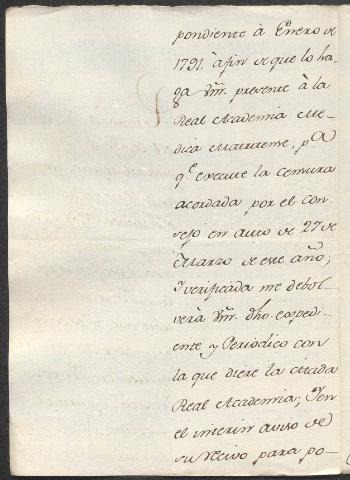 pondiente à Enero de
1791. à fin de que lo ha-
ga Vm. presente à la
Real Academia Me-
dica Matritense, p.a
q.e execute la censura
acordada por el Con-
sejo en auto de 27 de
Marzo de este año;
y verificada me debol-
verà Vm. dho. expedi-
ente y Periodico con
la que diere la citada
Real Academia; y en
el interin aviso de
su recivo para po-